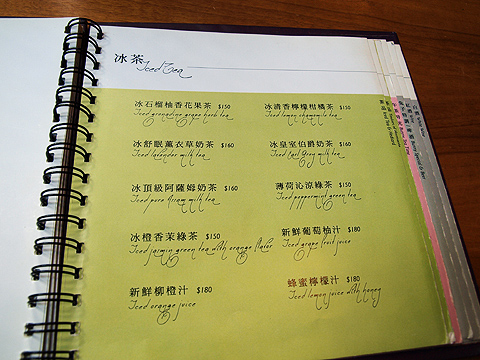 冰茶
Iced Tea
冰石榴柚香花果茶 $150
Iced grenadine grape herb tea
冰清香檸檬柑橘茶 $150
Iced lemon chamomile tea
冰舒眠薰衣草奶茶 $160
Iced lavender milk tea
冰皇室伯爵奶茶 $160
Iced Earl Grey milk tea
冰頂級阿薩姆奶茶 $160
Iced pure Assam milk tea
薄荷沁涼綠茶 $150
Iced peppermint green tea
冰橙香茉綠茶 $150
Iced jasmine green tea with orange flavor
新鮮葡萄柚汁 $180
Iced grape fruit juice
新鮮柳橙汁 $180
Iced orange juice
蜂蜜檸檬汁 $180
Iced lemon juice with honey